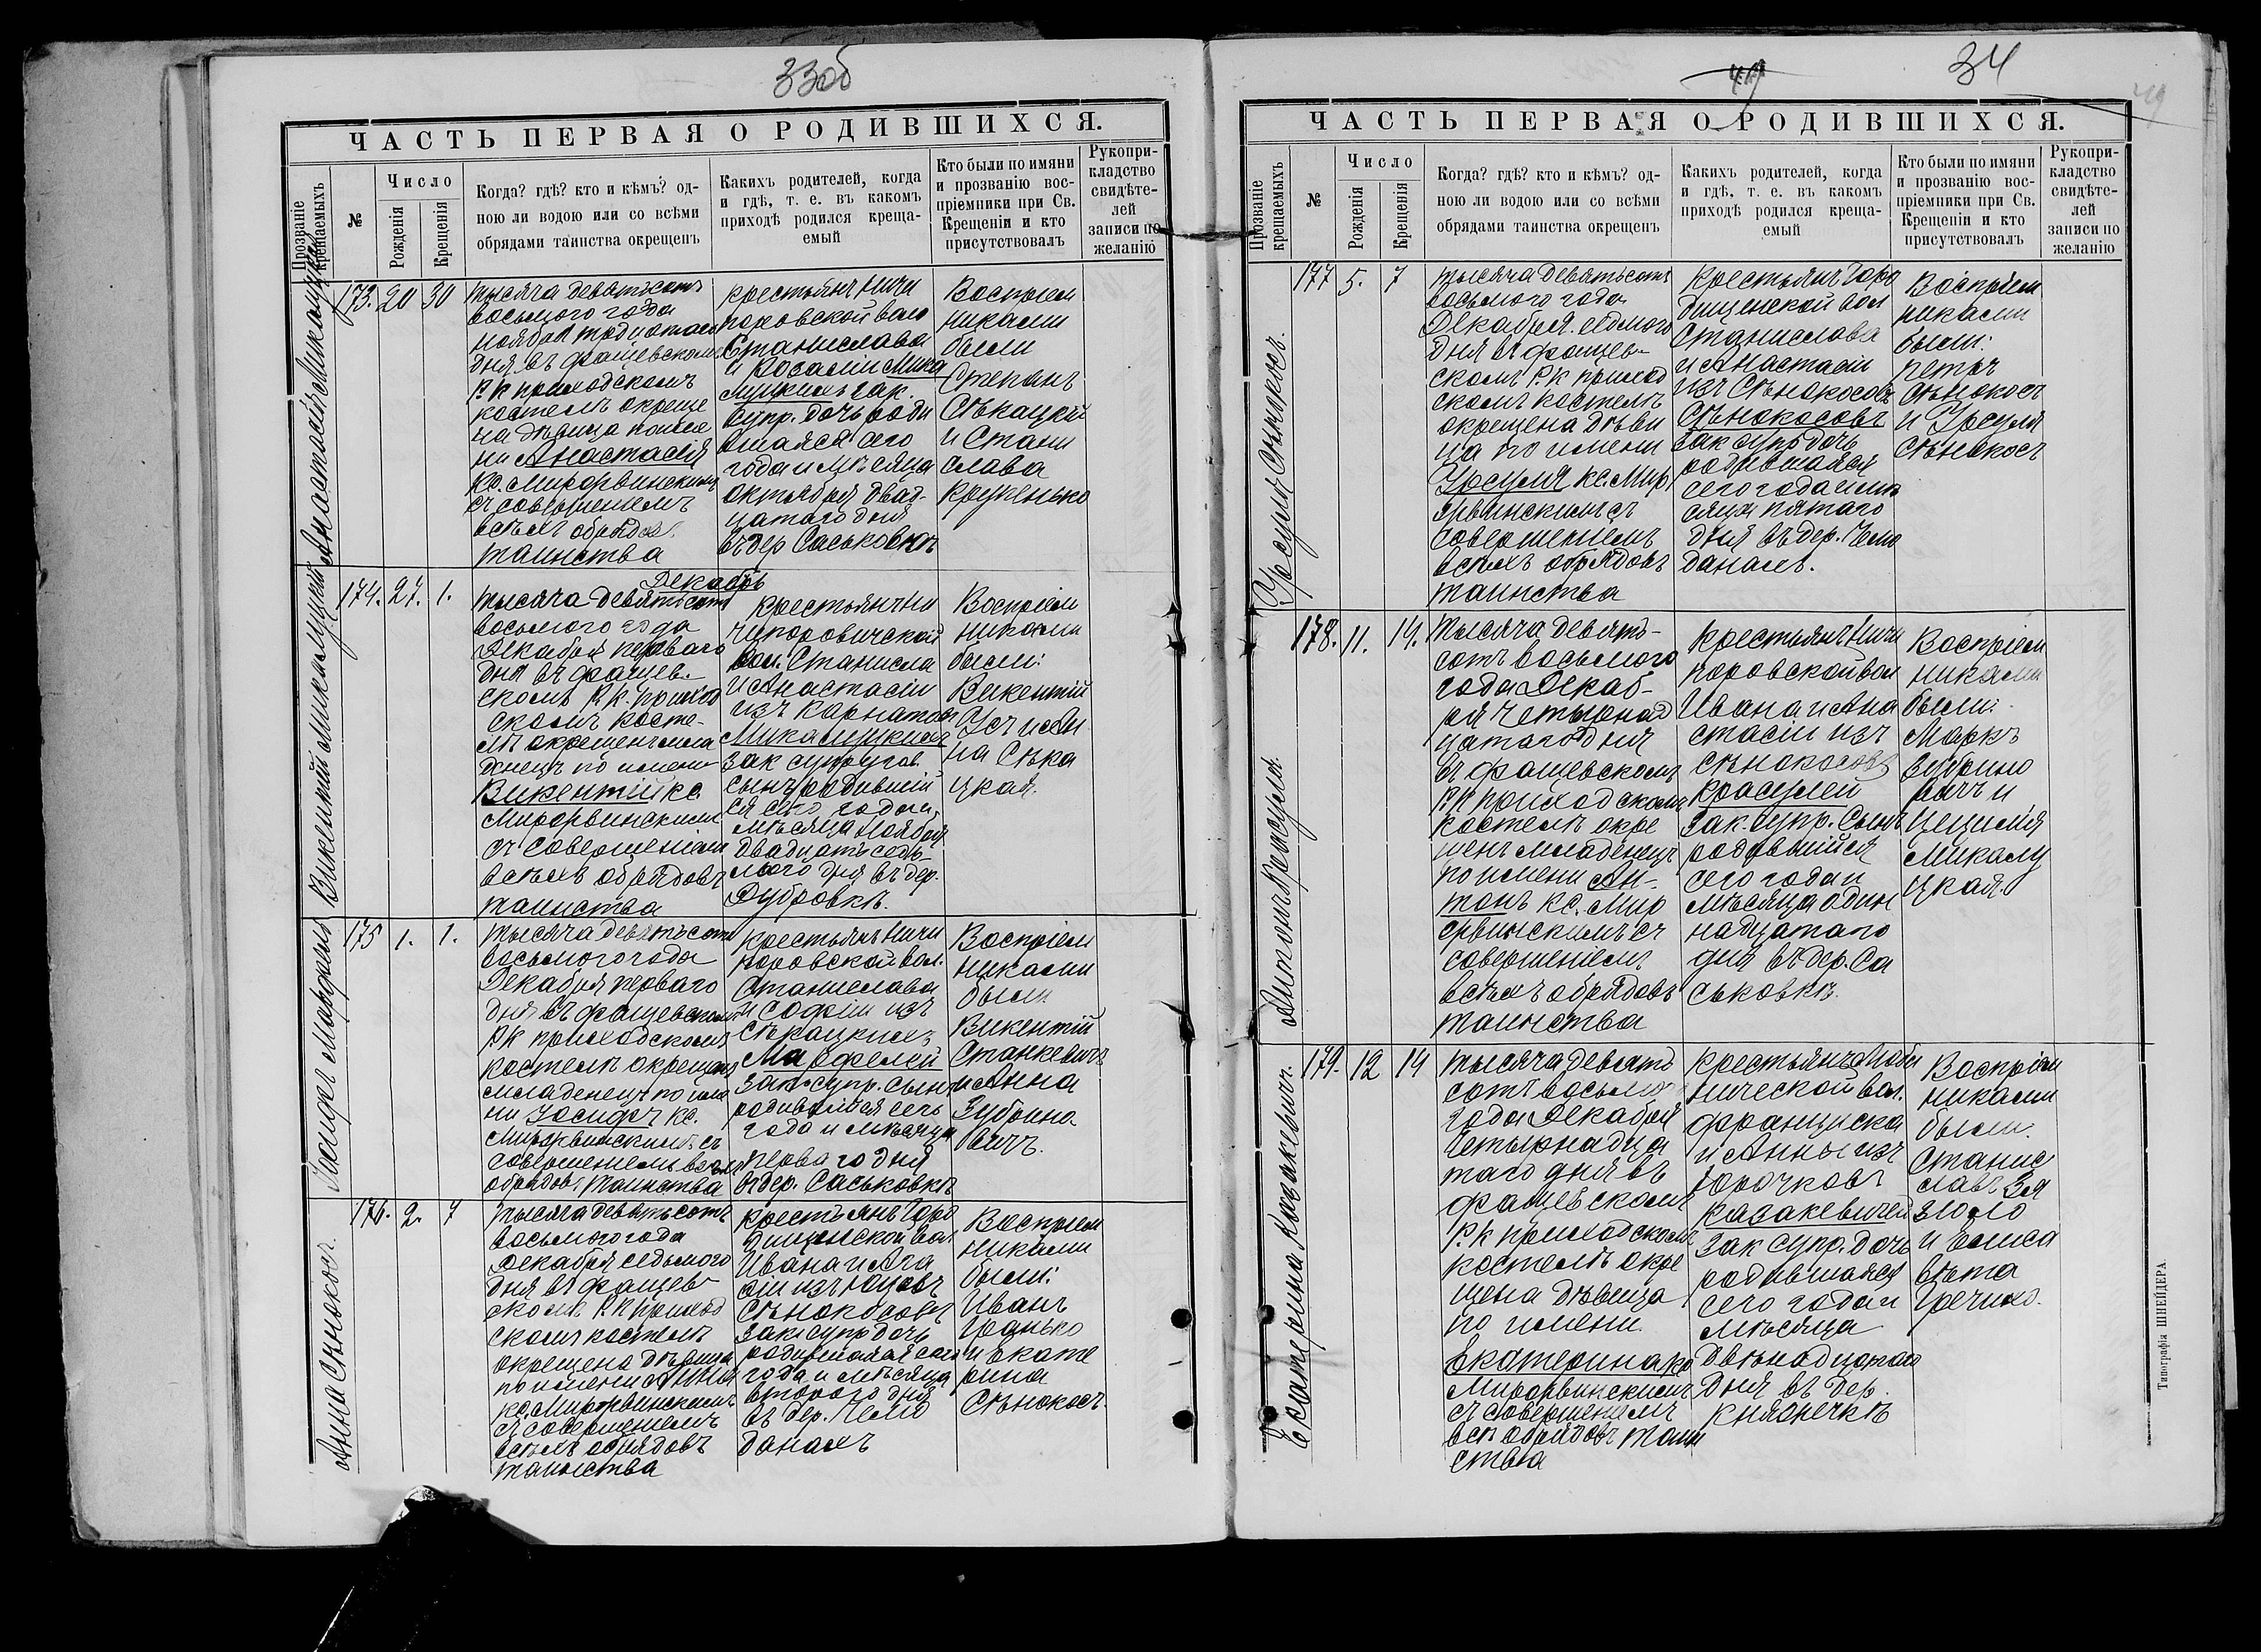 33об
ЧАСТЬ ПЕРВАЯ О РОДИВШИХСЯ.
Прозваніе крещаемыхъ
№
Число
Рожденія
Крещенія
Когда? гдѣ? кто и кѣмъ? од-
ною ли водою или со всѣми
обрядами таинства окрещенъ
Какихъ родителей, когда
и гдѣ, т. е. въ какомъ
приходѣ родился креща-
емый
Кто были по имяни
и прозванію вос-
пріемники при Св.
Крещеніи и кто
присутствовалъ
Рукопри-
кладство
свидѣте-
лей
записи по
желанію
Анастасія Микалуцкая
173. 20 30
тысяча девятьсотъ
восьмого года
ноября тридцатаго
дня въ Фащевскомъ
Р.К приходскомъ
костелѣ окреще
на дѣвица по име
ни Анастасія
кс. Мирорвинскимъ
съ совершеніемъ
всѣхъ обрядовъ
таинства
крестьянъ Ничи
поровской вол
Станислава
и Розаліи Мика
луцкихъ зак.
супр. дочь роди
вшаяся сего
года и мѣсяца
октября двад-
цатаго дня
въ дер Саськовкѣ
Воспріем
никами
были
Степанъ
Сѣкацкій
и Стани
слава
Крукенько
Викентій Микалуцкій
174. 27. 1.
Декабрь
тысяча девятьсотъ
восьмого года
Декабря перваго
дня въ Фащев-
скомъ Р.К. приход
скомъ косте-
лѣ окрещенъ мла
денецъ по имени
Викентій кс.
Мирорвинскимъ
съ совершеніемъ
всѣхъ обрядовъ
таинства
крестьянъ Ни
чипоровичской
вол. Станисла
и Анастасіи
изъ Карнатовъ
Микалуцкихъ
зак супруговъ
сынъ родившій
ся сего года и
мѣсяца Ноября
двадцать седь-
мого дня въ дер.
Дубровкѣ.
Воспріем
никами
были:
Викентій
Усъ и Ан
на Сѣка
цкая.
Іосифъ Марфель
175 1. 1.
тысяча девятьсотъ
восьмого года
Декабря перваго
дня въ Фащевскомъ
Р.К приходскомъ
костелѣ окрещенъ
младенецъ по име
ни Іосифъ кс.
Мирорвинскимъ съ
совершеніемъ всѣхъ
обрядовъ таинства
крестьянъ Ничи
поровской вол.
Станислава
и Софіи изъ
Сѣкацкихъ
Марфелей
зак. супр. сынъ
родившійся сего
года и мѣсяца
перваго дня
въ дер. Саськовкѣ
Воспріем
никами
были
Викентій
Станкевичъ
и Анна
Зубрино
вичъ.
Анна Сѣнокосъ.
176. 2. 7
тысяча девятьсотъ
восьмого года
Декабря седьмого
дня въ Фащев-
скомъ Р.К приход
скомъ костелѣ
окрещена дѣвица
по имени Анна
кс. Мирорвинскимъ
съ совершеніемъ
всѣхъ обрядовъ
таинства
крестьянъ Горо
дищенской вол
Ивана и Ага
фіи изъ Юцовъ
Сѣнокосовъ
зак супр дочь
родившаяся сего
года и мѣсяца
второго дня
въ дер. Чемо
данахъ
Воспріем
никами
были:
Иванъ
Гранько
и Екате
рина
Сѣнокосъ.
49
34
49
ЧАСТЬ ПЕРВАЯ О РОДИВШИХСЯ.
Прозваніе крещаемыхъ
№
Число
Рожденія
Крещенія
Когда? гдѣ? кто и кѣмъ? од-
ною ли водою или со всѣми
обрядами таинства окрещенъ
Какихъ родителей, когда
и гдѣ, т. е. въ какомъ
приходѣ родился креща-
емый
Кто были по имяни
и прозванію вос-
пріемники при Св.
Крещеніи и кто
присутствовалъ
Рукопри-
кладство
свидѣте-
лей
записи по
желанію
Урсуля Сѣнокосъ.
177 5. 7
тысяча девятьсотъ
восьмого года
Декабря седмого
дня въ Фащев-
скомъ Р.К приход
скомъ костелѣ
окрещена дѣви
ца по имени
Урсуля кс. Мир
орвинскимъ съ
совершеніемъ
всѣхъ обрядовъ
таинства
крестьянъ Горо
дищенской вол
Станислава
и Анастасіи
изъ Сѣнокосовъ
Сѣнокосовъ
зак супр дочь
родившаяся
сего года и мѣ
сяца пятаго
дня въ дер. Чемо
данахъ.
Воспріем
никами
были:
Петръ
Сѣнокосъ
и Урсуля
Сѣнокосъ
Антонъ Красуля.
178. 11. 14.
тысяча девять-
сотъ восьмого
года Декаб-
ря четырнад
цатаго дня
въ Фащевскомъ
Р.К приходскомъ
костелѣ окре
щенъ младенецъ
по имени Ан-
тонъ кс. Мир
орвинскимъ съ
совершеніемъ
всѣхъ обрядовъ
таинства
крестьянъ Ничи
поровской вол
Ивана и Ана
стасіи изъ
Сѣнокосовъ
Красулей
зак. супр. сынъ
родившійся
сего года и
мѣсяца один
надцатаго
дня въ дер. Са
ськовкѣ.
Воспріем
никами
были:
Маркъ
Зубрино
вичъ и
Цецилія
Микалу
цкая.
Екатерина Казакевичъ.
179. 12 14
тысяча девять
сотъ восьмого
года Декабря
четырнадца
таго дня въ
Фащевскомъ
Р.К приходскомъ
костелѣ окре
щена дѣвица
по имени
Екатерина кс
Мирорвинскимъ
съ совершеніемъ
всѣ обрядовъ таин
ства
крестьянъ
нической вол.
Франциска
и Анны изъ
Юрочковъ
Казакевичей
зак супр. дочь
родившаяся
сего года и
мѣсяца
двѣнадцатаго
дня въ дер.
Княжечкѣ
Воспріем
никами
были.
Станис
славъ Зя
зюло
и Елиса
вѣта
Гречихо.
Типографія ШНЕЙДЕРА